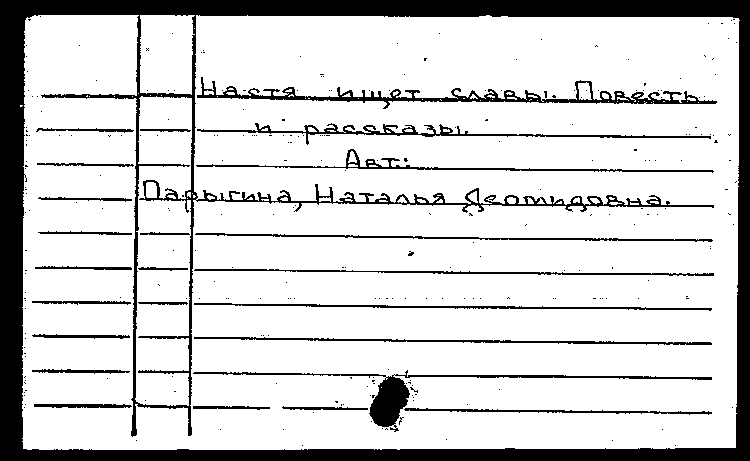 Настя ищет славы. Повесть
и рассказы.
Авт.:
Парыгина, Наталья Деомидовна.